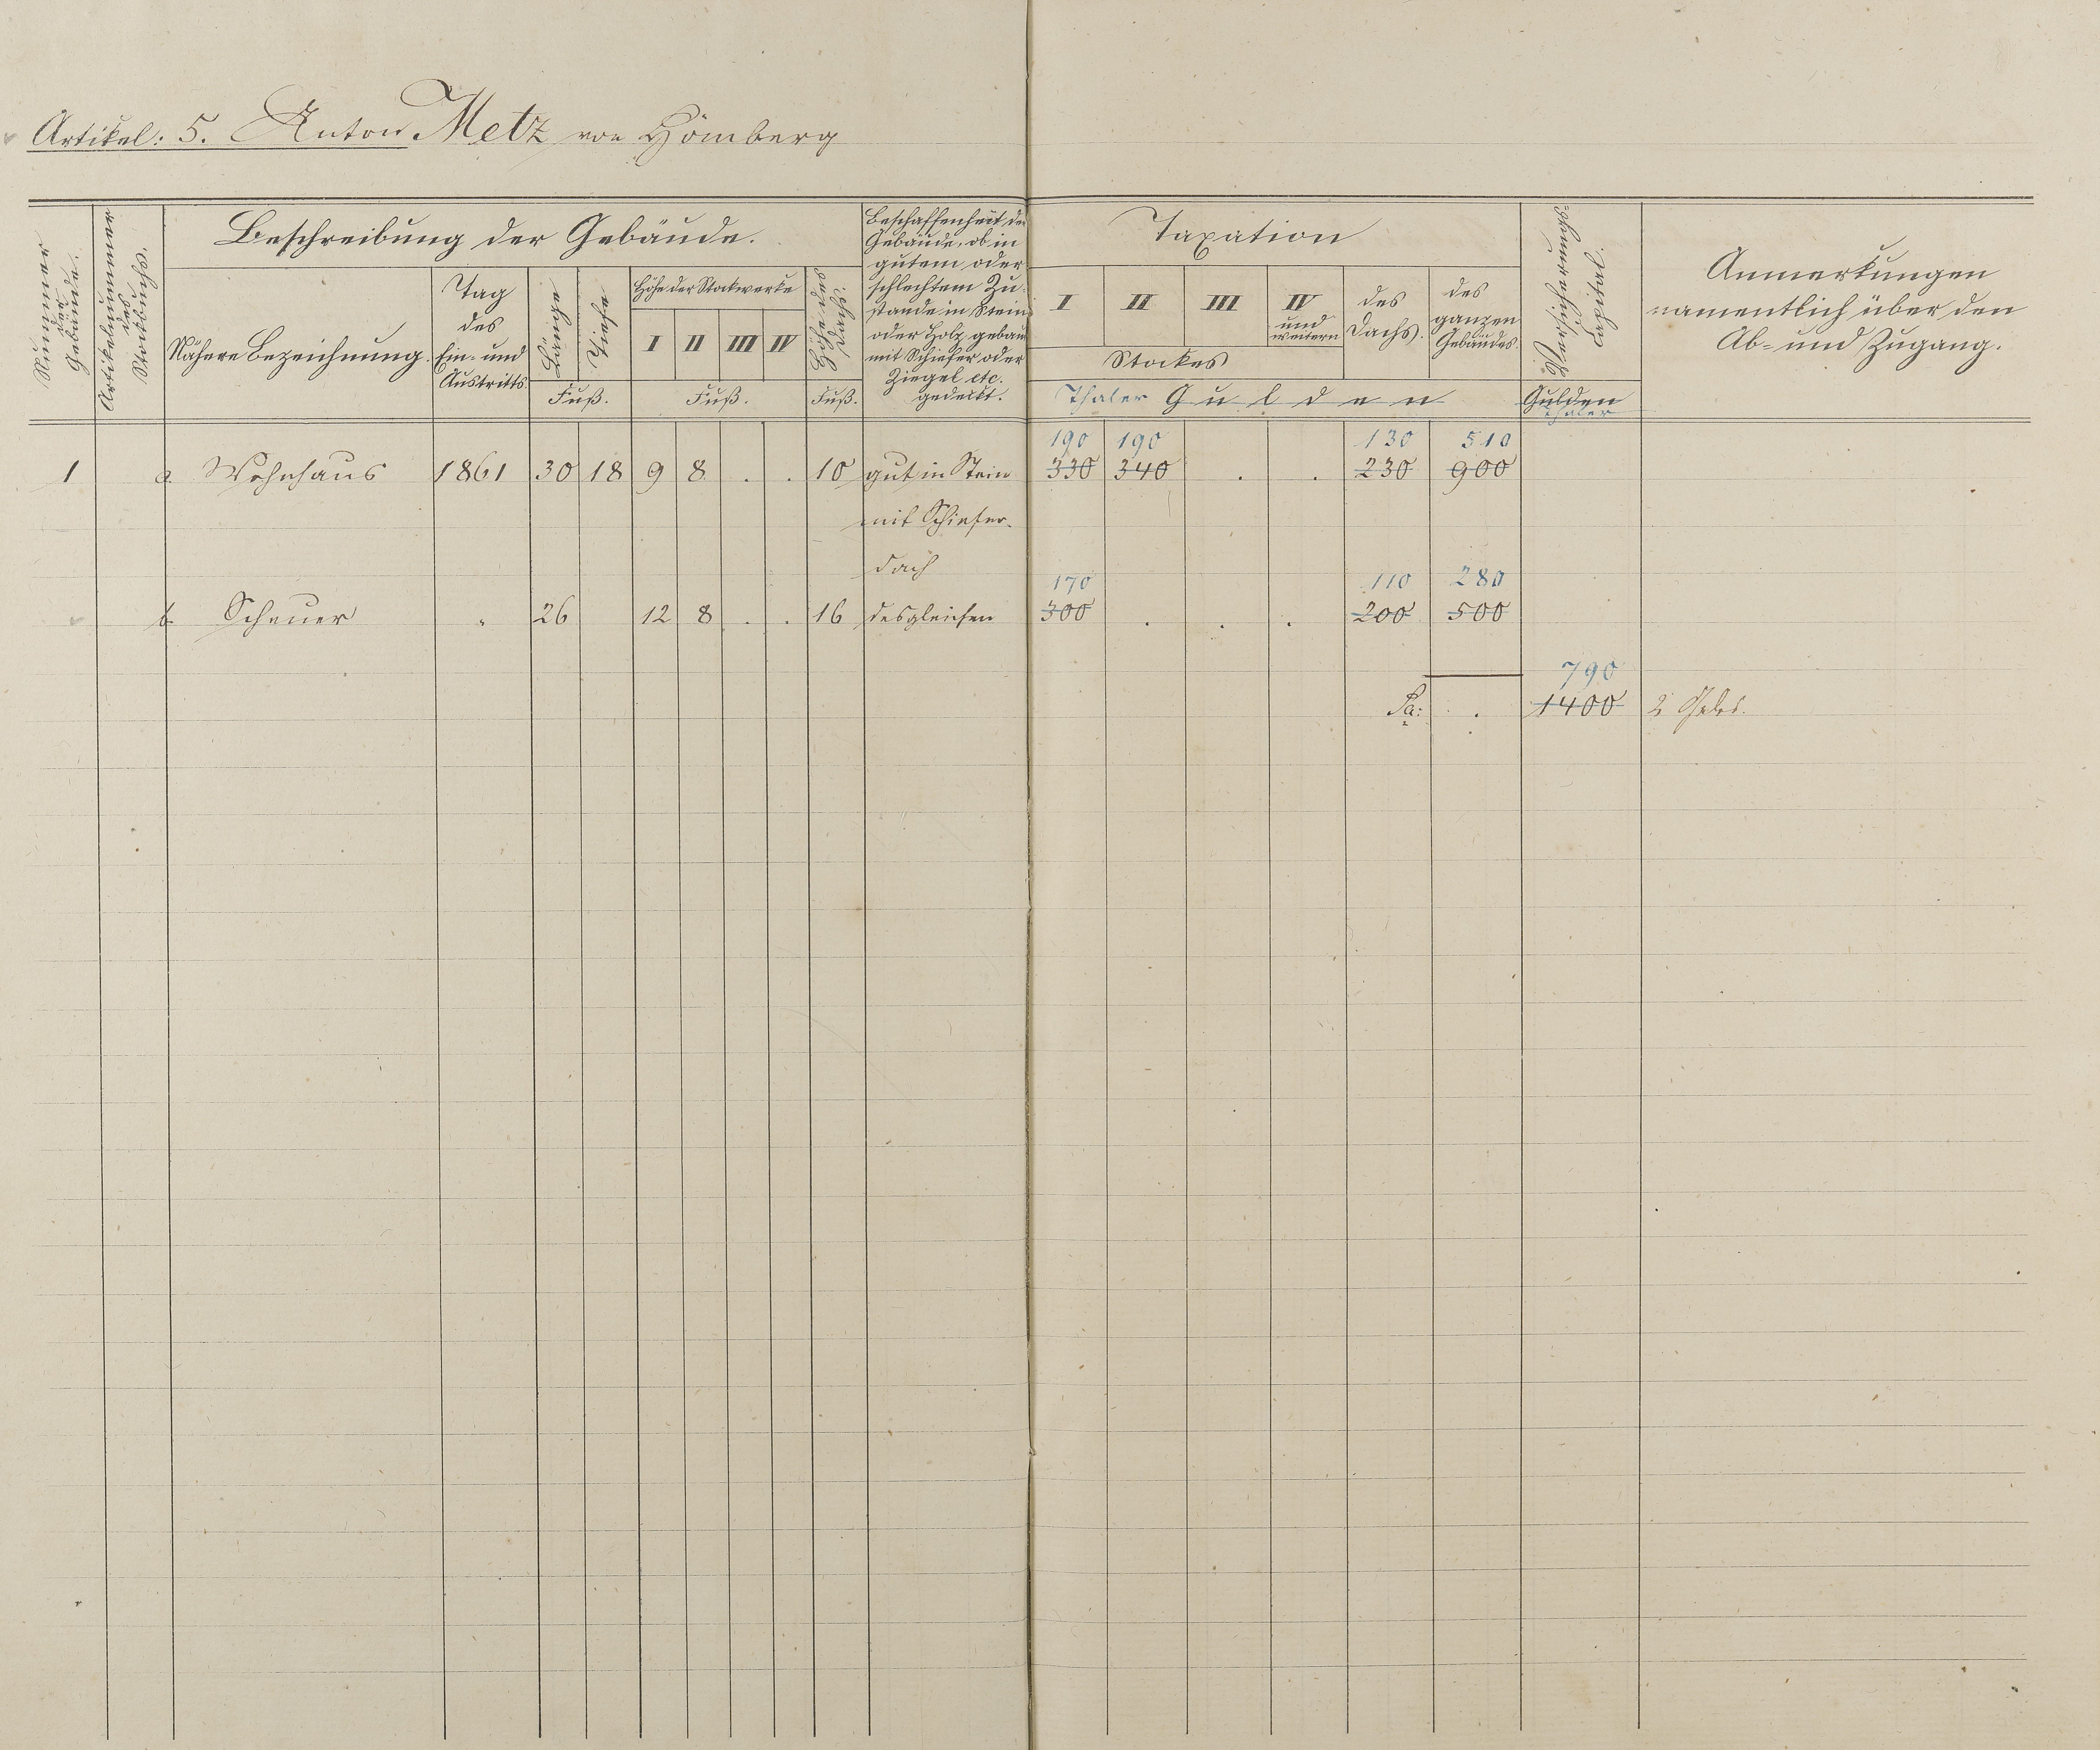 Artikel: 5. Anton Metz von Hömberg
Nummer der Gebäude.
Artikelnummer des Stockbuchs.
Beschreibung der Gebäude.
Nähere Bezeichnung.
Tag
des
Ein- und
Austritts
Länge
Tiefe
Fuß.
Höhe der Stockwerke
I II III IV
Fuß.
Höhe des Dachs.
Fuß.
Beschaffenheit der
Gebäude, ob in
gutem oder
schlechtem Zu-
stande in Stein
oder Holz gebaut
mit Schiefer oder
Ziegel etc.
gedeckt.
Taxation
I II III IV
und
weitern
Stockes
des
Dachs.
des
ganzen
Gebäudes.
Thaler Gulden
Gulden
Thaler
Anmerkungen
namentlich über den
Ab- und Zugang.
190 190 130 510
1 a Wohnhaus 1861 30 18 9 8 . . 10 gut in Stein 330 340 . . 230 900
mit Schiefer-
dach
170 110 280
b Scheuer " 26 12 8 . . 16 desgleichen 300 . . . 200 500
790
Sa: . 1400 2